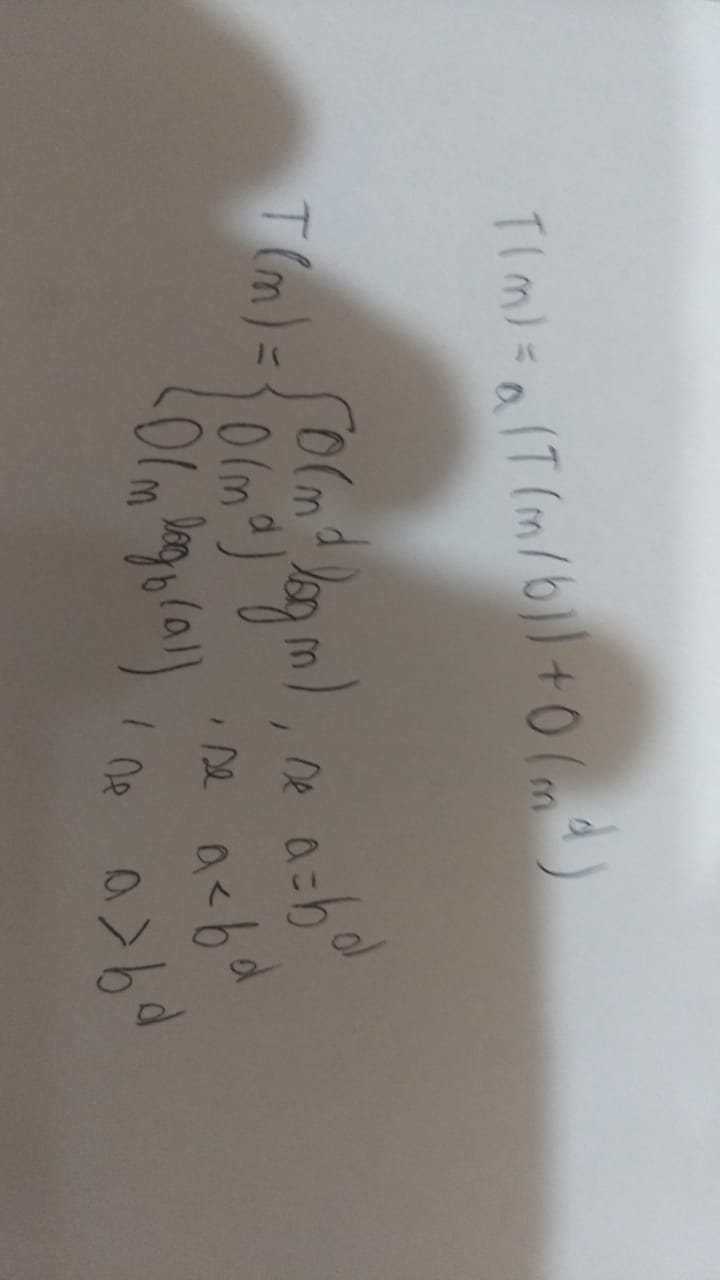 T(n) = a(T(n/b)) + O(n^d)
T(n) = { O(n^d log n), se a = b^d
O(n^d), se a < b^d
O(n^log_b(a)), se a > b^d